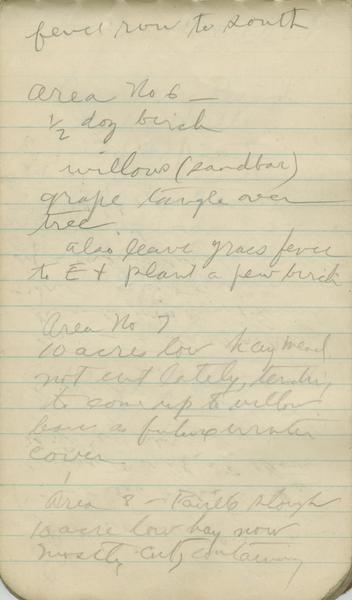 fence row to south
Area No 6 —
1/2 doz birch
willows (sandbar)
grape tangle over
tree
also leave grass fence
to E + plant a few birch
Area No 7
10 acres low hay mead
not cut lately, tending
to come up to willow
leave as future winter
cover
Area 8 — slough
10 acre low hay now
mostly cut, containing